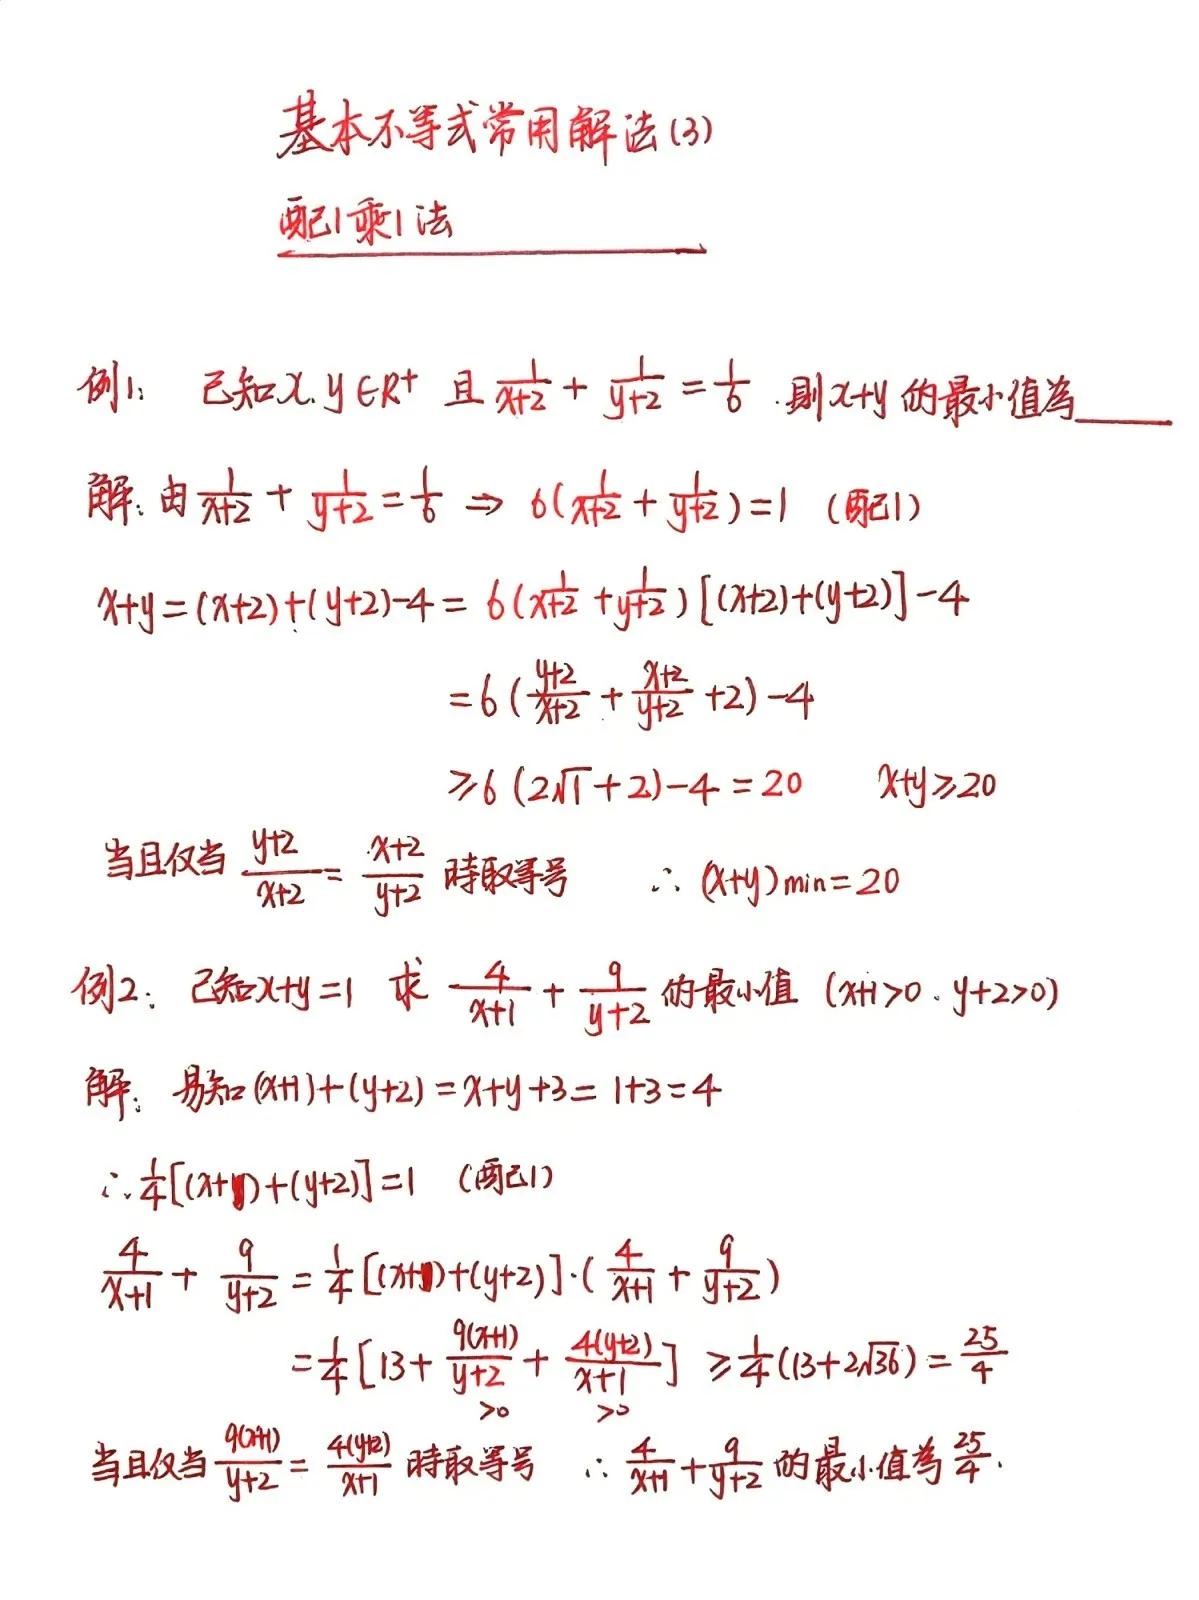 基本不等式常用解法(3)
配1乘1法
例1: 已知x.y∈R⁺ 且 1/(x+2) + 1/(y+2) = 1/6 .则x+y的最小值為____
解: 由 1/(x+2) + 1/(y+2) = 1/6 ⇒ 6(1/(x+2) + 1/(y+2)) = 1 (配1)
x+y=(x+2)+(y+2)-4= 6(1/(x+2) + 1/(y+2))[(x+2)+(y+2)]-4
=6((y+2)/(x+2) + (x+2)/(y+2) +2)-4
≥6(2√1+2)-4=20 x+y≥20
当且仅当 (y+2)/(x+2) = (x+2)/(y+2) 時取等号 ∴(x+y)min=20
例2: 已知x+y=1 求 4/(x+1) + 9/(y+2) 的最小值 (x+1>0、y+2>0)
解: 易知(x+1)+(y+2)=x+y+3=1+3=4
∴1/4[(x+1)+(y+2)]=1 (配1)
4/(x+1) + 9/(y+2) = 1/4[(x+1)+(y+2)]·(4/(x+1) + 9/(y+2))
=1/4[13+ 9(x+1)/(y+2) + 4(y+2)/(x+1)] ≥1/4(13+2√36)= 25/4
>0 >0
当且仅当 9(x+1)/(y+2) = 4(y+2)/(x+1) 時取等号 ∴ 4/(x+1) + 9/(y+2) 的最小值為 25/4.